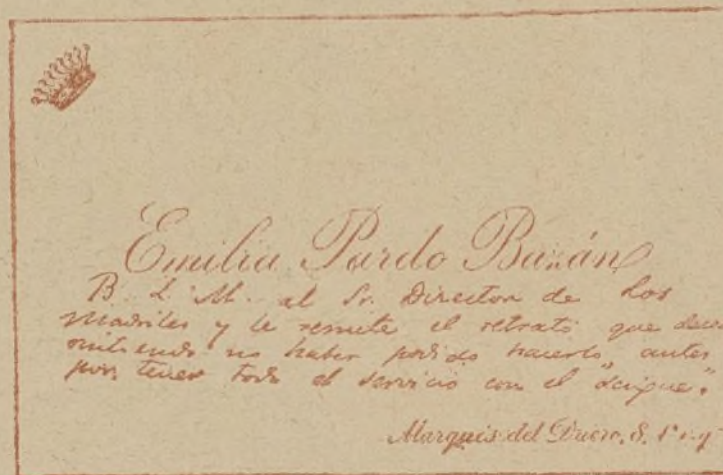 Emilia Pardo Bazán
B. L. M. al Sr. Director de Los
Madriles y le remite el retrato que desea
sintiendo no haber podido hacerlo antes
por tener todo el servicio con el "dengue".
Marqués del Duero, 8, 1º